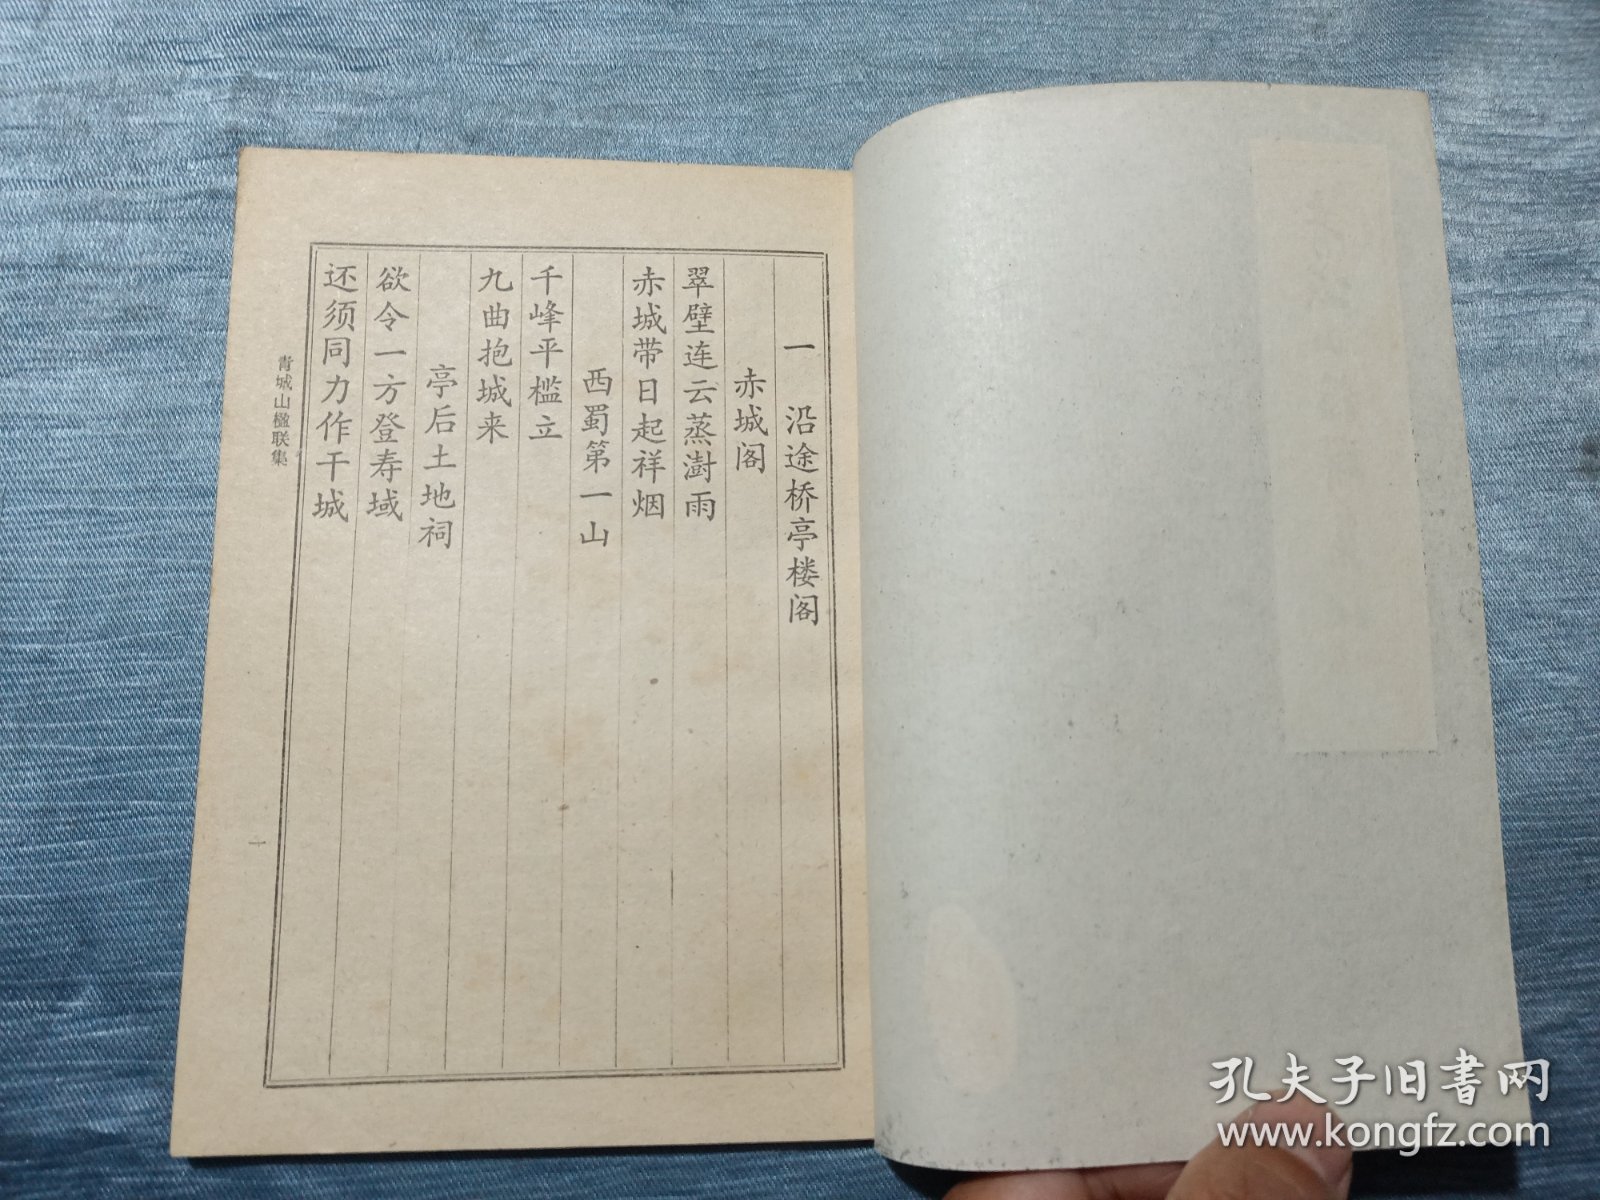 一 沿途桥亭楼阁
赤城阁
翠壁连云蒸澍雨
赤城带日起祥烟
西蜀第一山
千峰平槛立
九曲抱城来
亭后土地祠
欲令一方登寿域
还须同力作干城
青城山楹联集
一
孔夫子旧书网
www.kongfz.com